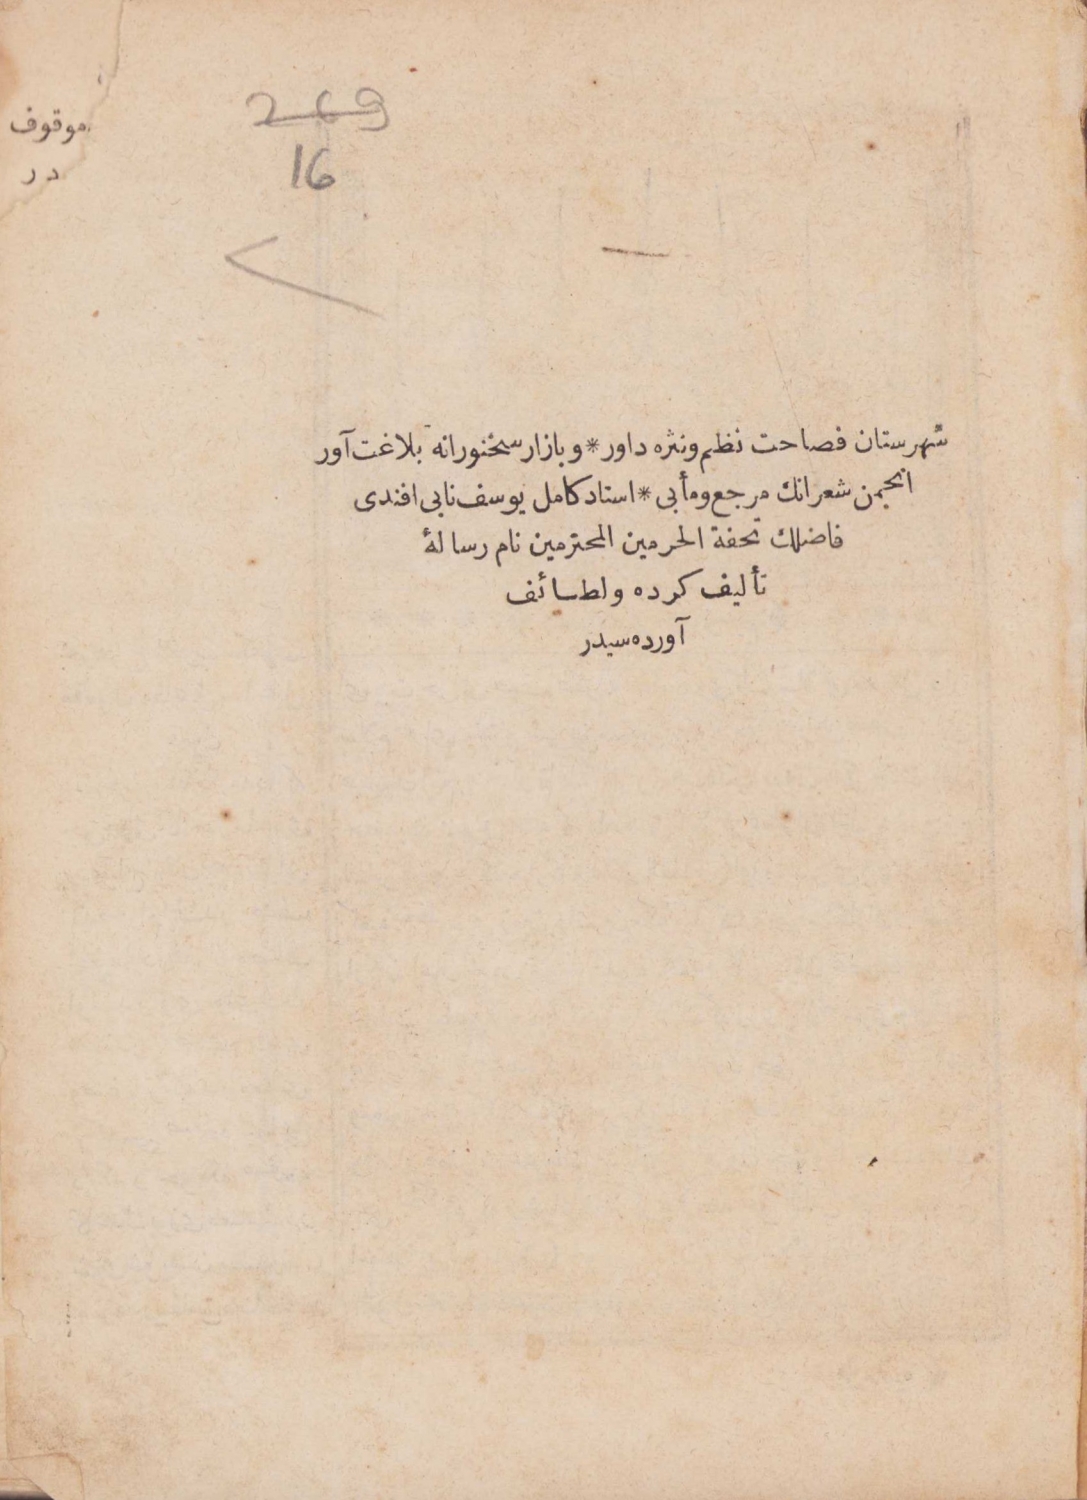 موقوف
در
269
16
شهرستان فصاحت نظم ونثره داور * وبازار سخنورانه بلاغت آور
انجمن شعرانك مرجع ومأبى * استاد كامل يوسف نابى افندى
فاضلك تحفة الحرمين المحترمين نام رسالهٔ
تأليف كرده ولطائف
آورده سيدر